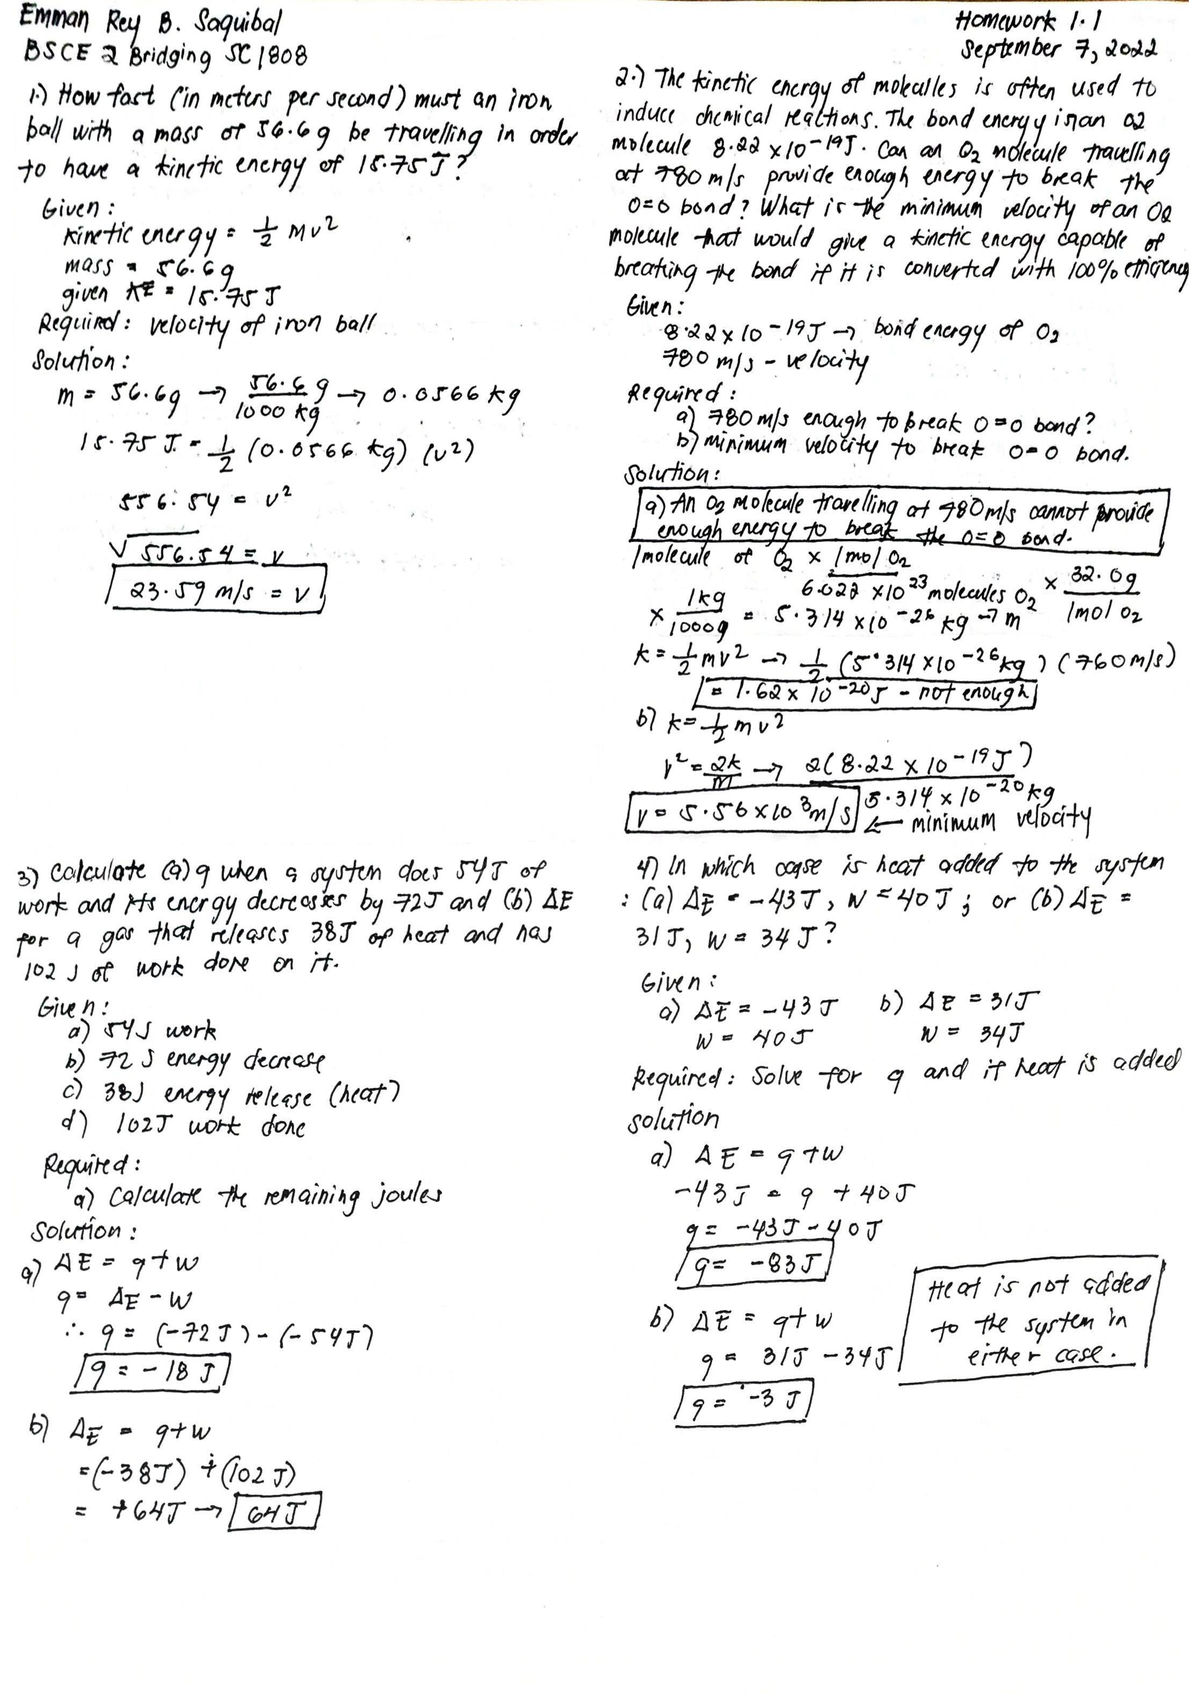 Emman Rey B. Saquibal
BSCE 2 Bridging SC1808
Homework 1.1
September 7, 2022
1.) How fast (in meters per second) must an iron
ball with a mass of 56.6g be travelling in order
to have a kinetic energy of 15.75 J?
Given:
Kinetic energy = 1/2 Mv²
mass = 56.6g
given KE = 15.75 J
Required: velocity of iron ball
Solution:
m = 56.6g → 56.6g / 1000 kg → 0.0566 kg
15.75 J = 1/2 (0.0566 kg) (v²)
556.54 = v²
√556.54 = v
23.59 m/s = v
2.) The kinetic energy of molecules is often used to
induce chemical reactions. The bond energy in an O2
molecule 8.22 x 10-19J. Can an O2 molecule travelling
at 780 m/s provide enough energy to break the
O=O bond? What is the minimum velocity of an O2
molecule that would give a kinetic energy capable of
breaking the bond if it is converted with 100% efficiency
Given:
8.22 x 10-19J → bond energy of O2
780 m/s - velocity
Required:
a) 780 m/s enough to break O=O bond?
b) minimum velocity to break O=O bond.
Solution:
a) An O2 molecule travelling at 780m/s cannot provide
enough energy to break the O=O bond.
1 molecule of O2 x 1 mol O2 / 6.022 x10²³ molecules O2 x 32.0g / 1mol O2
x 1kg / 1000g = 5.314 x10-26 kg → m
k = 1/2 mv² → 1/2 (5.314 x10-26kg) (760m/s)
= 1.62 x 10-20J - not enough
b) k = 1/2 mv²
v² = 2k / m → 2(8.22 x 10-19 J) / 5.314 x 10-20 kg
v = 5.56 x 10³m/s ← minimum velocity
3) Calculate (a) q when a system does 54J of
work and its energy decreases by 72J and (b) ΔE
for a gas that releases 38J of heat and has
102 J of work done on it.
Given:
a) 54J work
b) 72 J energy decrease
c) 38J energy release (heat)
d) 102J work done
Required:
a) Calculate the remaining joules
Solution:
a) ΔE = q+w
q = ΔE - W
∴ q = (-72J) - (-54J)
q = -18 J
b) ΔE = q+w
=(-38J) + (102 J)
= +64J → 64 J
4) In which case is heat added to the system
: (a) ΔE = -43J, W = 40J; or (b) ΔE =
31J, W = 34 J?
Given:
a) ΔE = -43 J b) ΔE = 31J
W = 40J W = 34J
Required: Solve for q and if heat is added
solution
a) ΔE = q+w
-43J = q + 40J
q = -43J - 40J
q = -83J
b) ΔE = q+w
q = 31J - 34J
q = -3 J
Heat is not added
to the system in
either case.